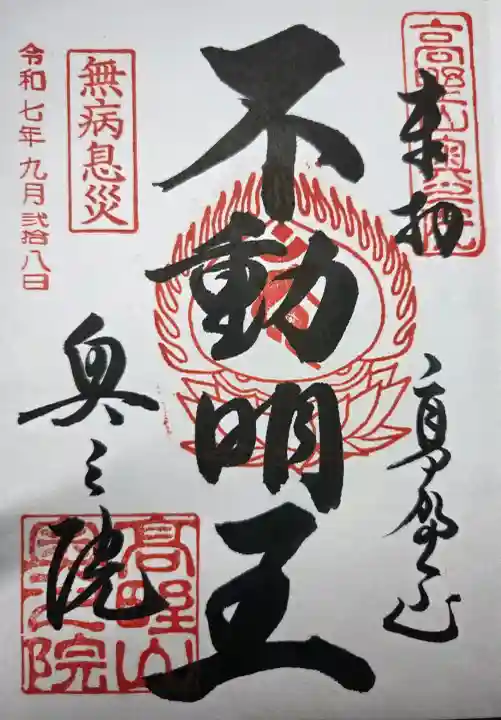 高野山奥之院
奉拝
高野山
不動明王
無病息災
令和七年九月弐拾八日
奥之院
高野山
奥之院